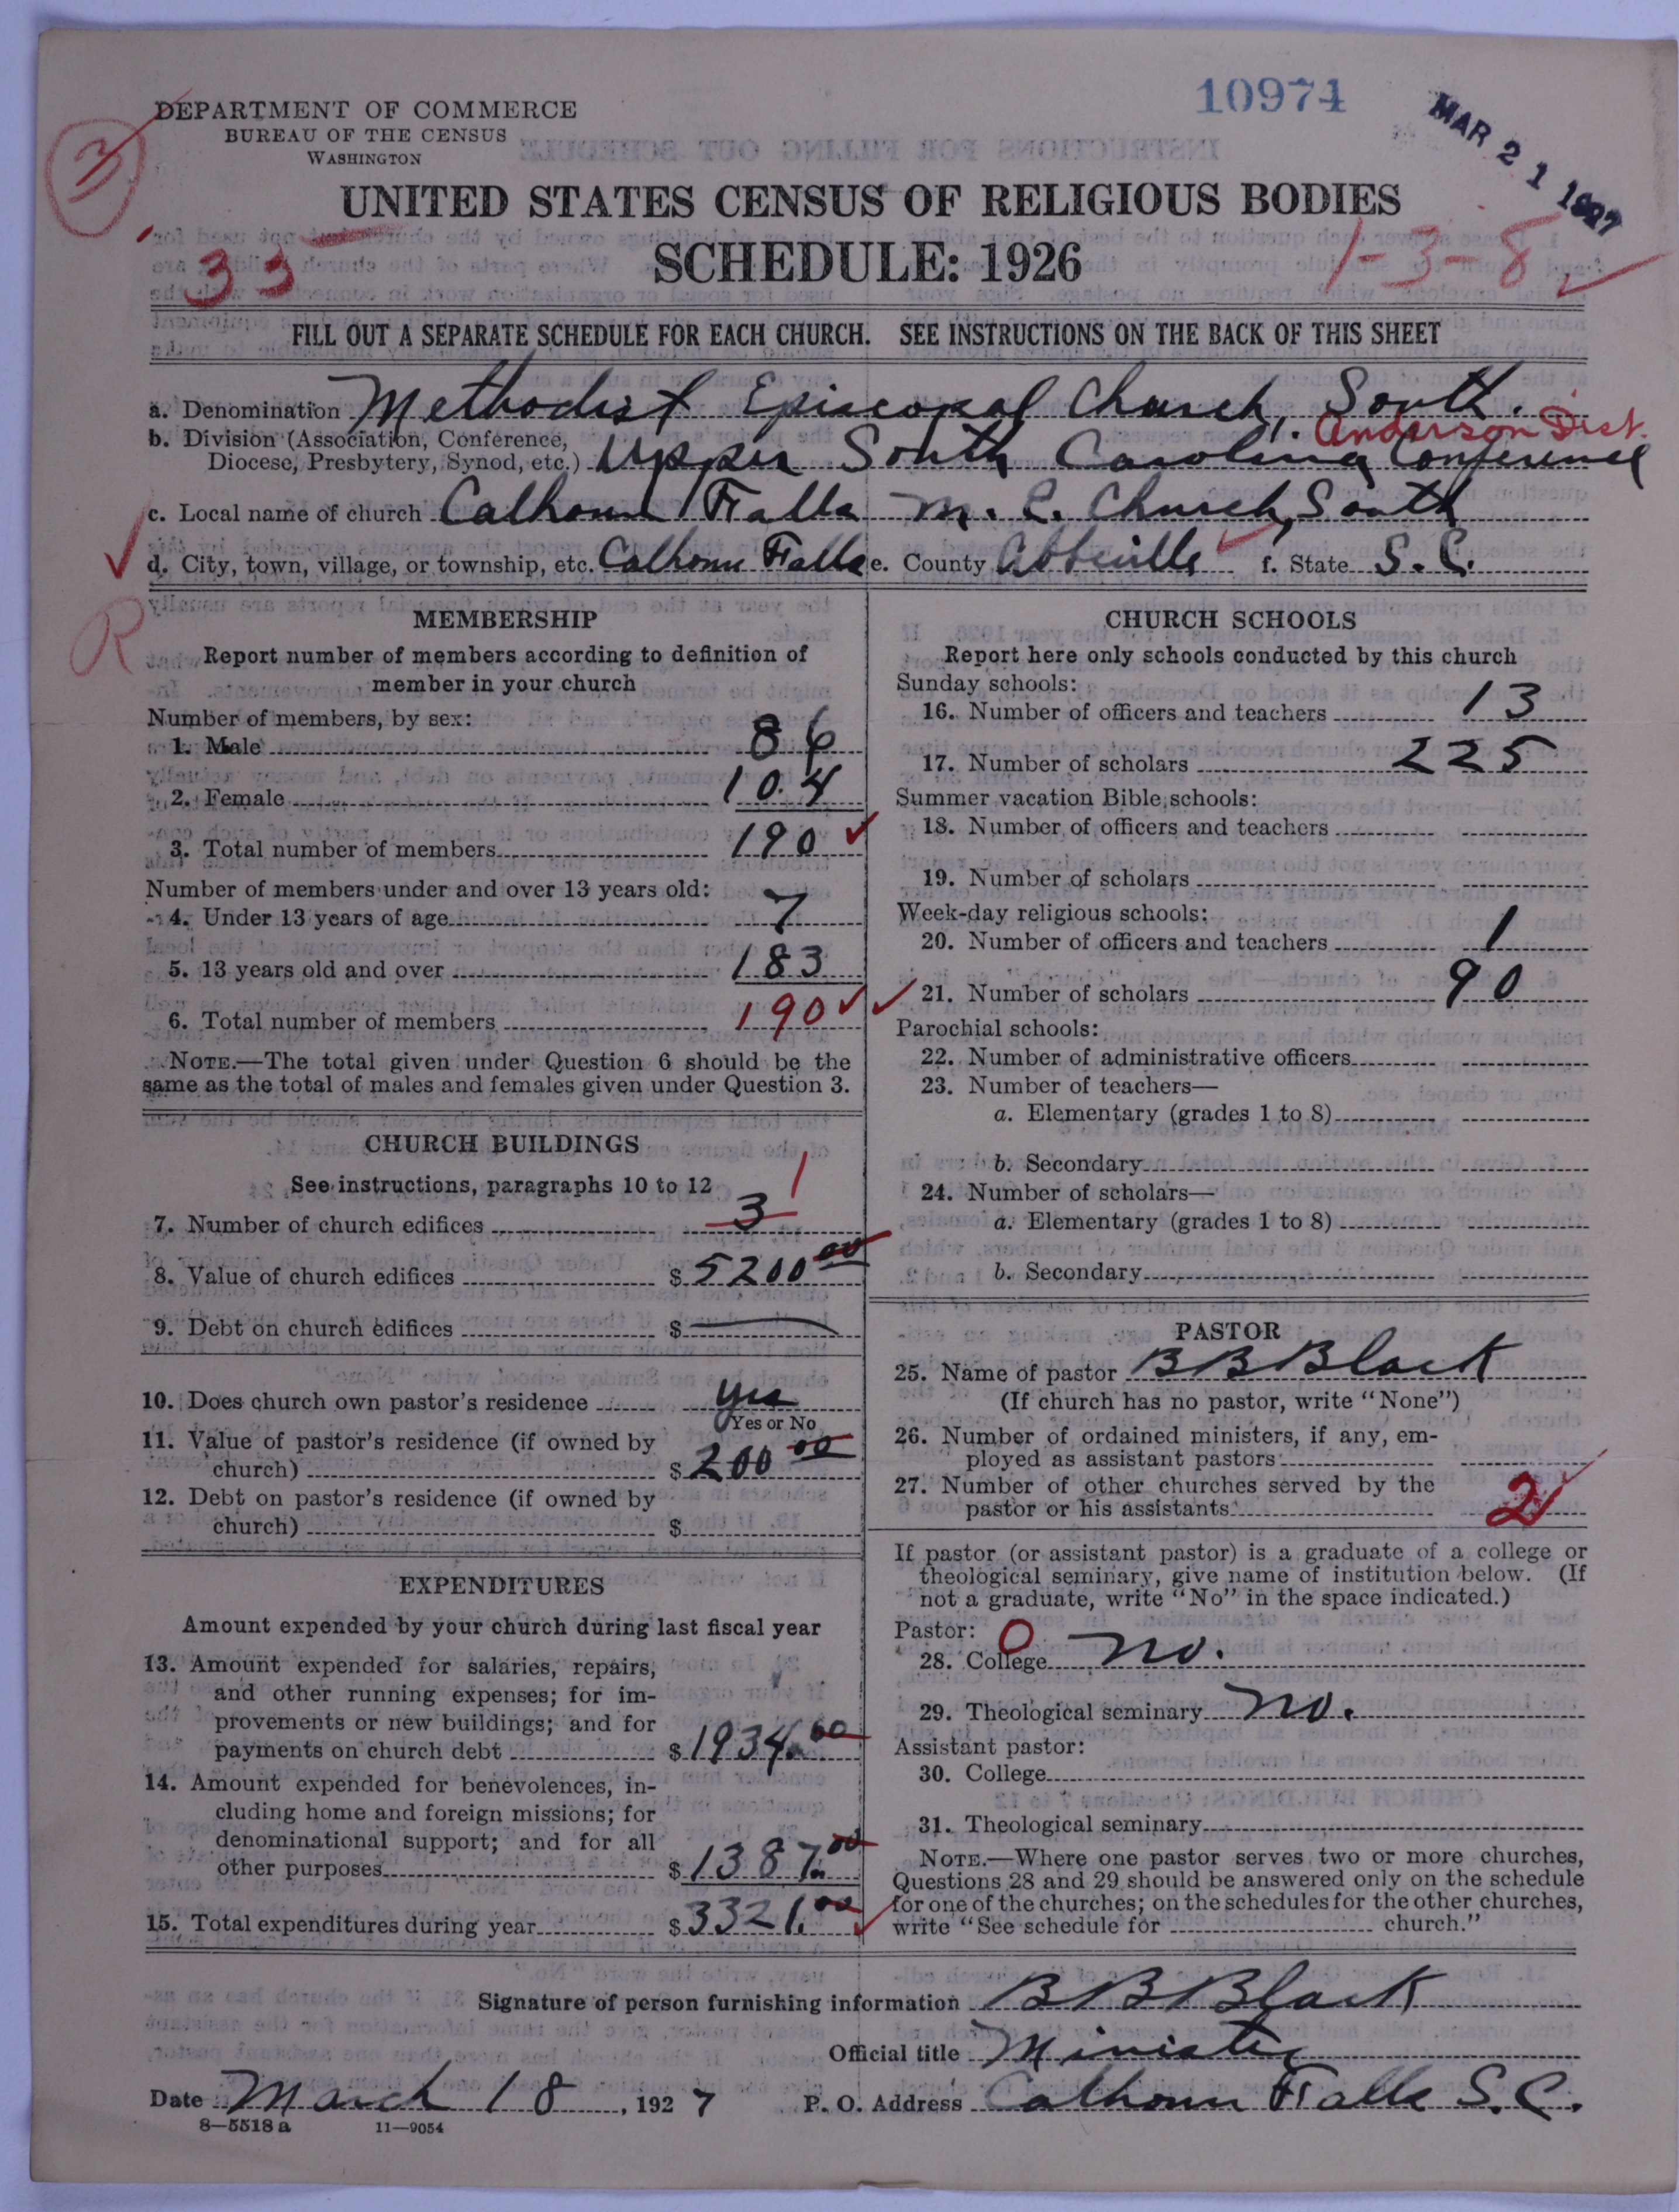 10974
MAR 21 1927
DEPARTMENT OF COMMERCE
BUREAU OF THE CENSUS
WASHINGTON
3
UNITED STATES CENSUS OF RELIGIOUS BODIES
33
SCHEDULE: 1926
1-3-8
FILL OUT A SEPARATE SCHEDULE FOR EACH CHURCH. SEE INSTRUCTIONS ON THE BACK OF THIS SHEET
a. Denomination Methodist Episcopal Church, South.
Anderson Dist.
b. Division (Association, Conference,
Diocese, Presbytery, Synod, etc.) Upper South Carolina Conference
c. Local name of church Calhoun Falls M. E. Church, South
d. City, town, village, or township, etc. Calhoun Falls e. County Abbeville f. State S. C.
R
MEMBERSHIP
Report number of members according to definition of
member in your church
Number of members, by sex:
1. Male 86
2. Female 104
3. Total number of members 190
Number of members under and over 13 years old:
4. Under 13 years of age 7
5. 13 years old and over 183
6. Total number of members 190
NOTE.—The total given under Question 6 should be the
same as the total of males and females given under Question 3.
CHURCH BUILDINGS
See instructions, paragraphs 10 to 12
7. Number of church edifices 3 1
8. Value of church edifices $ 5200 00
9. Debt on church edifices $ —
10. Does church own pastor's residence yes
Yes or No
11. Value of pastor's residence (if owned by
church) $ 200 00
12. Debt on pastor's residence (if owned by
church) $
EXPENDITURES
Amount expended by your church during last fiscal year
13. Amount expended for salaries, repairs,
and other running expenses; for im-
provements or new buildings; and for
payments on church debt $ 1934.00
14. Amount expended for benevolences, in-
cluding home and foreign missions; for
denominational support; and for all
other purposes $ 1387.00
15. Total expenditures during year $ 3321.00
CHURCH SCHOOLS
Report here only schools conducted by this church
Sunday schools:
16. Number of officers and teachers 13
17. Number of scholars 225
Summer vacation Bible schools:
18. Number of officers and teachers
19. Number of scholars
Week-day religious schools:
20. Number of officers and teachers 1
21. Number of scholars 90
Parochial schools:
22. Number of administrative officers
23. Number of teachers—
a. Elementary (grades 1 to 8)
b. Secondary
24. Number of scholars—
a. Elementary (grades 1 to 8)
b. Secondary
PASTOR
25. Name of pastor B B Black
(If church has no pastor, write "None")
26. Number of ordained ministers, if any, em-
ployed as assistant pastors
27. Number of other churches served by the
pastor or his assistants 2
If pastor (or assistant pastor) is a graduate of a college or
theological seminary, give name of institution below. (If
not a graduate, write "No" in the space indicated.)
Pastor: O
28. College no.
29. Theological seminary no.
Assistant pastor:
30. College
31. Theological seminary
NOTE.—Where one pastor serves two or more churches,
Questions 28 and 29 should be answered only on the schedule
for one of the churches; on the schedules for the other churches,
write "See schedule for church."
Signature of person furnishing information B B Black
Official title Minister
Date March 18, 1927 P. O. Address Calhoun Falls S. C.
8—5518 a 11—9054